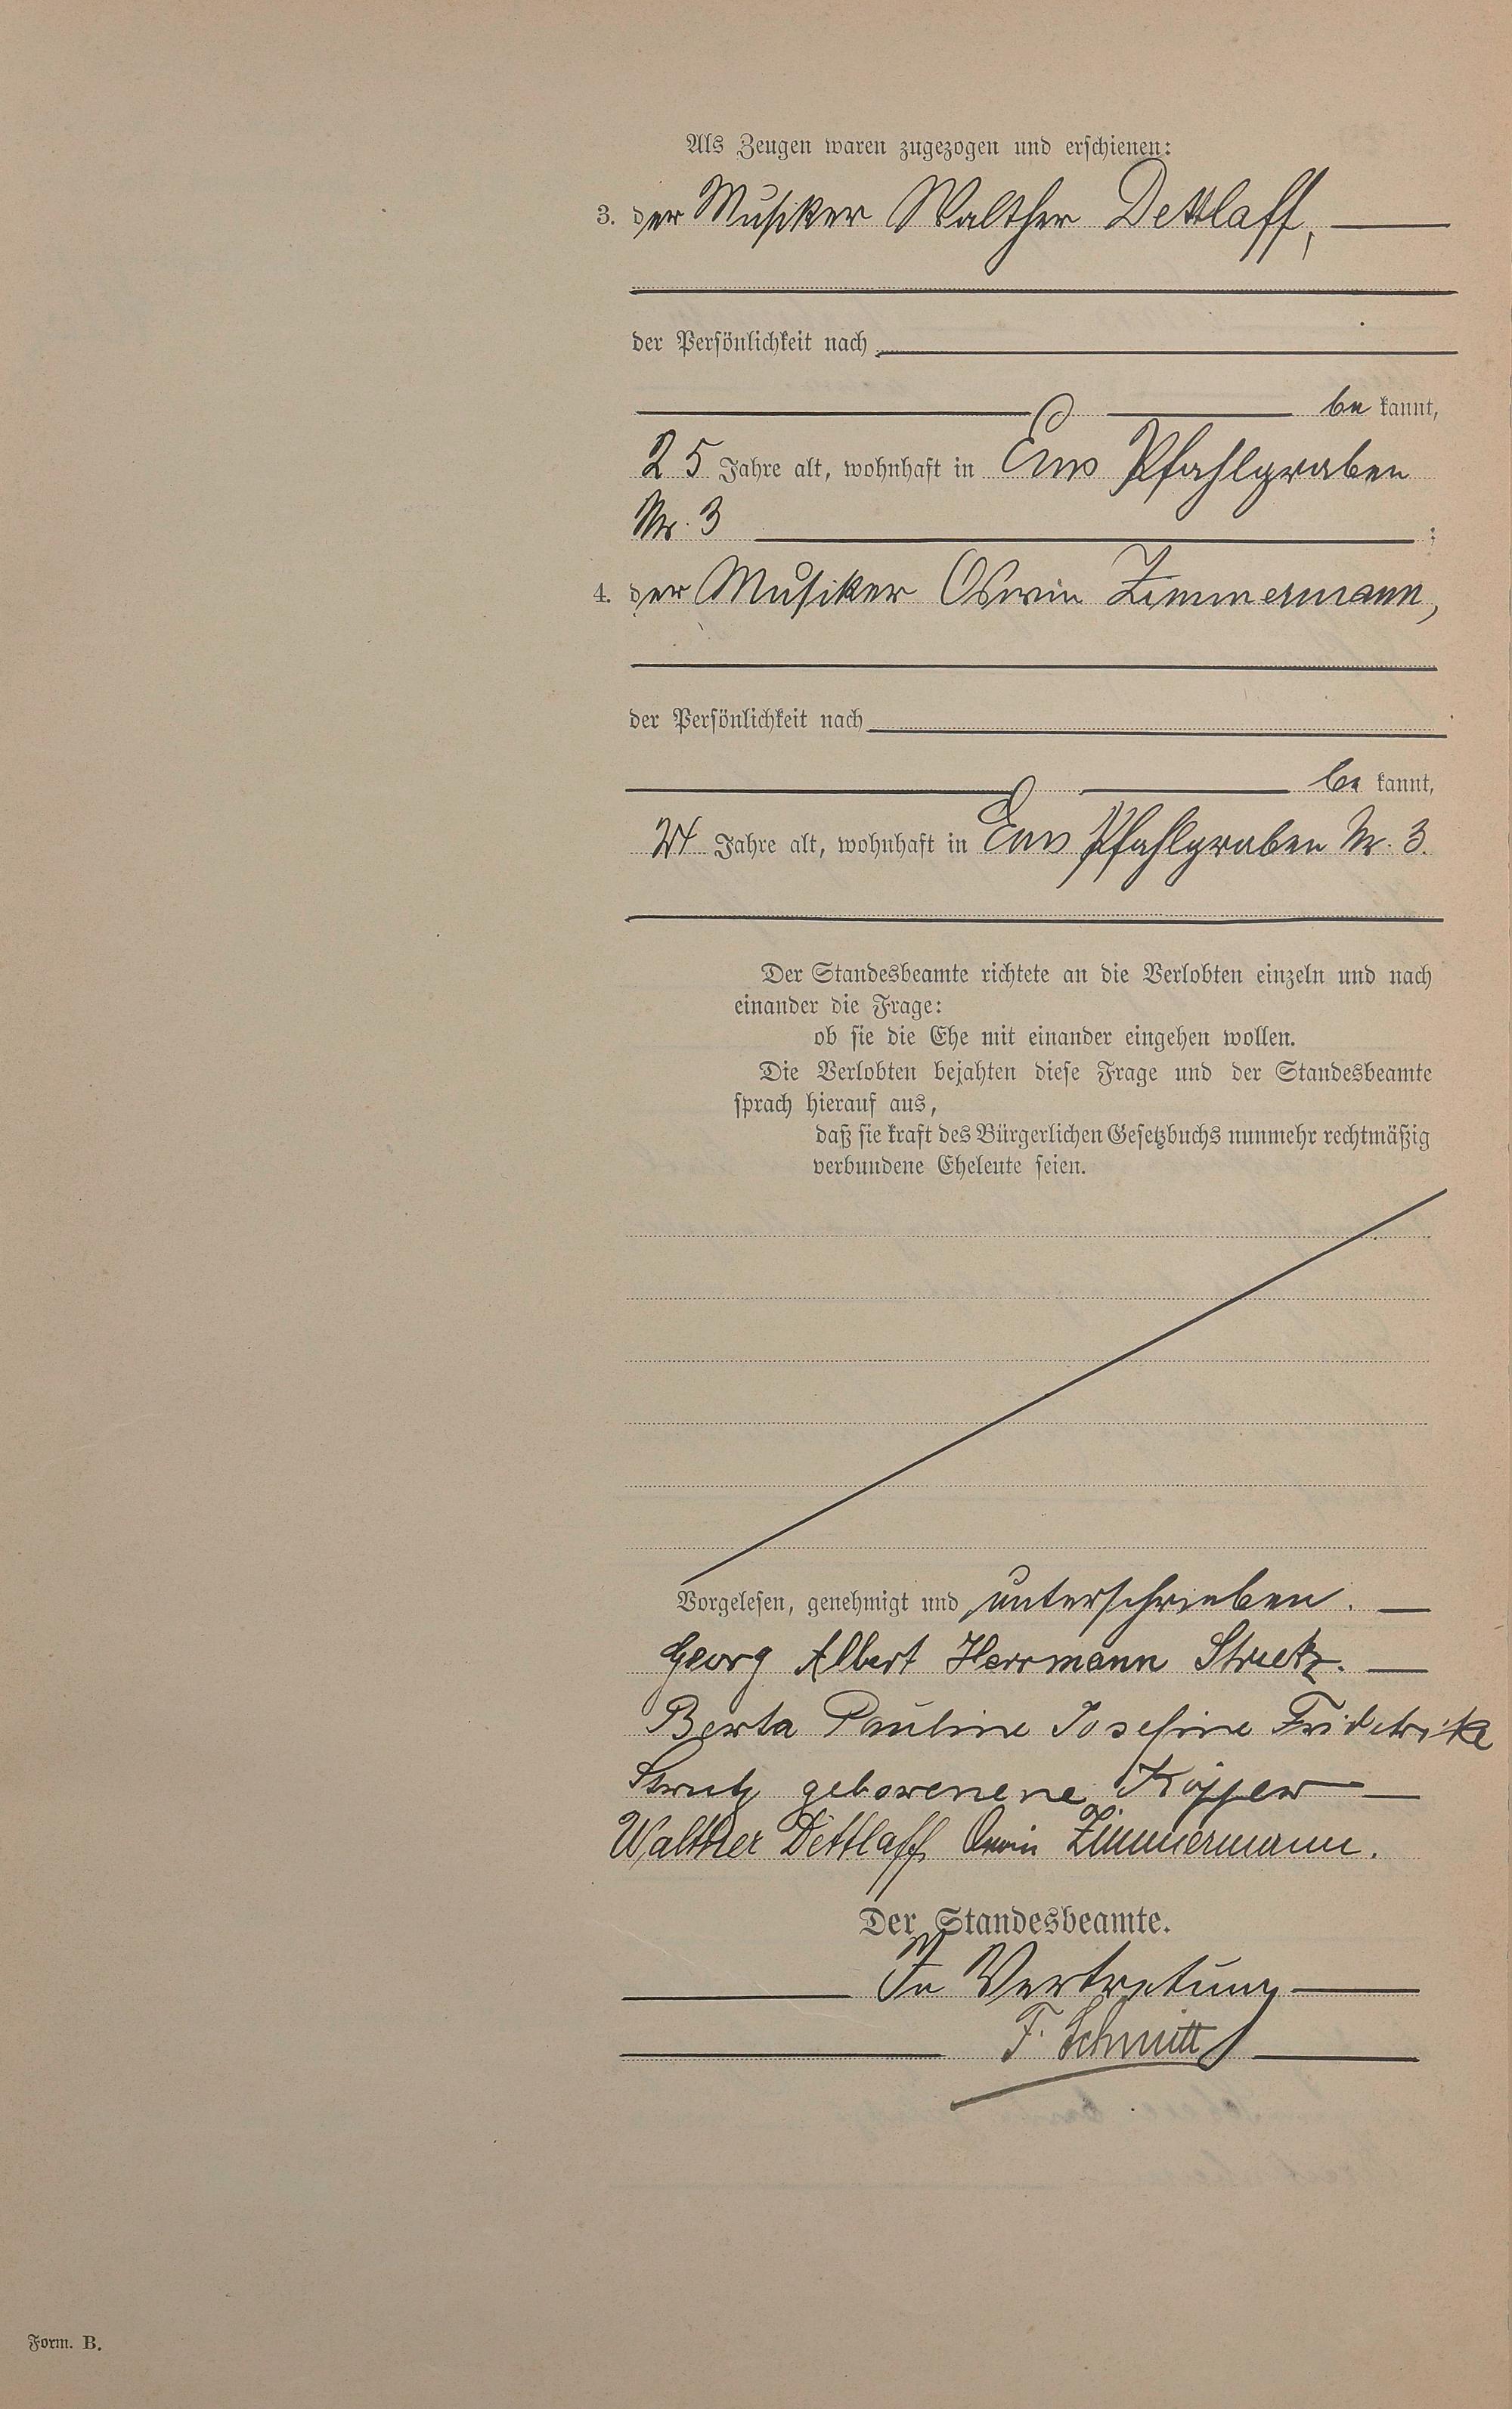 Als Zeugen waren zugezogen und erschienen:
3. der Musiker Walther Dettlaff,
der Persönlichkeit nach
be kannt,
25 Jahre alt, wohnhaft in Ems Pfahlgraben
Nr. 3 ;
4. der Musiker Oswin Zimmermann,
der Persönlichkeit nach
be kannt,
24 Jahre alt, wohnhaft in Ems Pfahlgraben Nr. 3.
Der Standesbeamte richtete an die Verlobten einzeln und nach
einander die Frage:
ob sie die Ehe mit einander eingehen wollen.
Die Verlobten bejahten diese Frage und der Standesbeamte
sprach hierauf aus,
daß sie kraft des Bürgerlichen Gesetzbuchs nunmehr rechtmäßig
verbundene Eheleute seien.
Vorgelesen, genehmigt und unterschrieben.
Georg Albert Herrmann
Berta Pauline Josefine
geborenene
Walther Dettlaff Oswin Zimmermann.
Der Standesbeamte.
In Vertretung
F. Schmitt
Form. B.